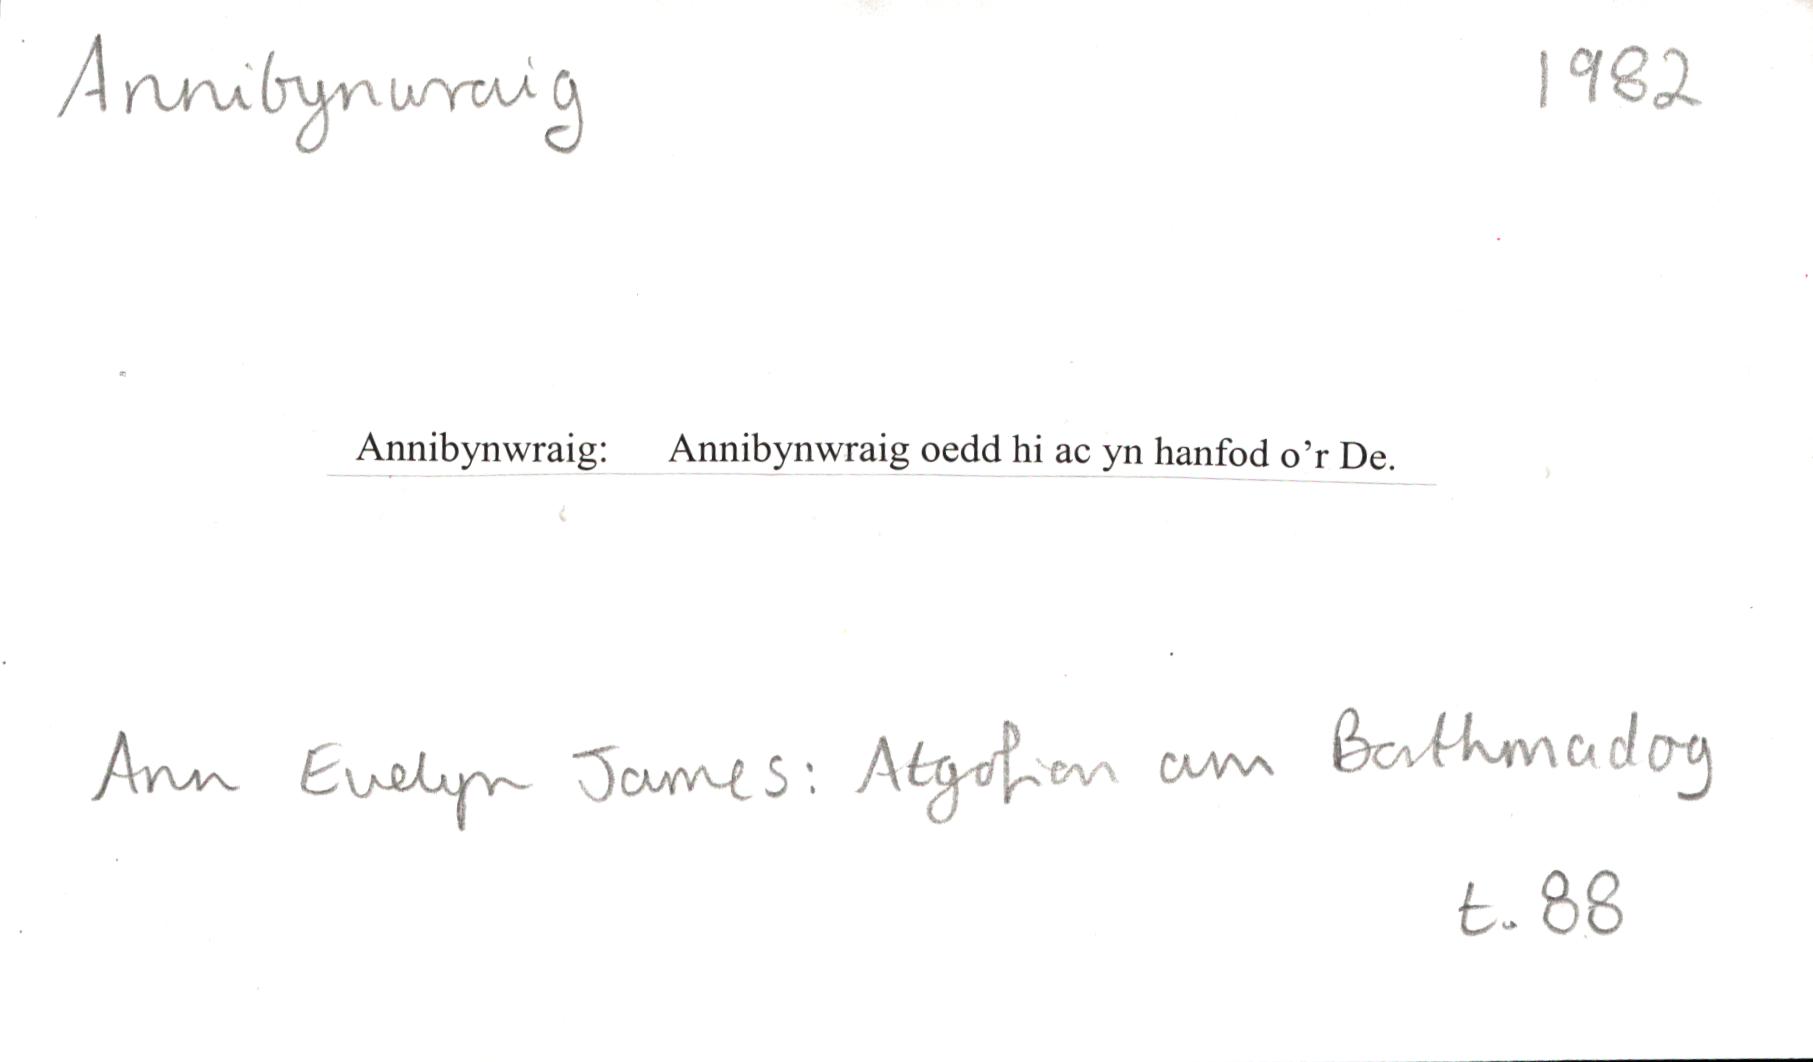 Annibynwraig 1982
Annibynwraig: Annibynwraig oedd hi ac yn hanfod o’r De.
Ann Evelyn James: Atgofion am Borthmadog
t. 88